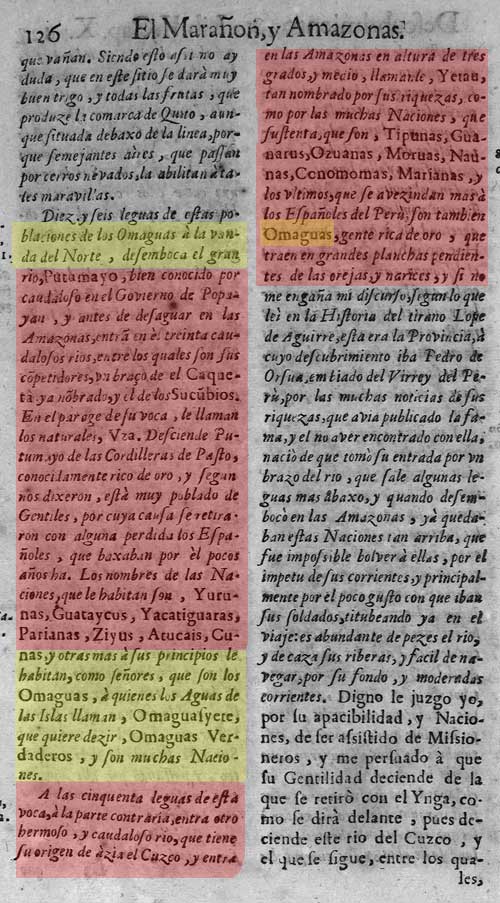 126 El Marañon, y Amazonas.
que vañan. Siendo esto assi no ay
duda, que en este sitio se darà muy
buen trigo, y todas las frutas, que
produze la comarca de Quito, aun-
que situada debaxo de la linea, por-
que semejantes aires, que passan
por cerros nevados, la abilitan à ta-
les maravillas.
Diez y seis leguas de estas po-
blaciones de los Omaguas à la van-
da del Norte, desemboca el gran
rio, Putumayo, bien conocido por
caudaloso en el Govierno de Popa-
yan, y antes de desaguar en las
Amazonas, entrã en èl treinta cau-
dalosos rios, entre los quales son sus
cõpetidores, vn braço de el Caque-
tà ya nõbrado, y el de los Sucũbios.
En el parage de su voca, le llaman
los naturales, Yza. Desciende Pu-
tumayo de las Cordilleras de Pasto,
conocidamente rico de oro, y segun
nos dixeron, està muy poblado de
Gentiles, por cuya causa se retira-
ron con alguna perdida los Espa-
ñoles, que baxaban por èl pocos
años ha. Los nombres de las Na-
ciones, que le habitan son, Yuru-
nas, Guataycus, Yacatiguaras,
Parianas, Ziyus, Atucais, Cu-
nas, y otras mas à sus principios le
habitan, como señores, que son los
Omaguas, à quienes los Aguas de
las Islas llaman, Omaguasyete,
que quiere dezir, Omaguas Ver-
daderos, y son muchas Nacio-
nes.
A las cinquenta leguas de esta
voca, à la parte contraria, entra otro
hermoso, y caudaloso rio, que tiene
su origen de àzia el Cuzco, y entra
en las Amazonas en altura de tres
grados, y medio, llamanle, Yetau,
tan nombrado por sus riquezas, co-
mo por las muchas Naciones, que
sustenta, que son, Tipunas, Gua-
narus, Ozuanas, Moruas, Naù-
nas, Cenomomas, Marianas, y
los vltimos, que se avezindan mas à
los Españoles del Perù, son tambien
Omaguas, gente rica de oro, que
traen en grandes planchas pendien-
tes de las orejas, y narices, y si no
me engaña mi discurso, segun lo que
leì en la Historia del tirano Lope
de Aguirre, esta era la Provincia, à
cuyo descubrimiento iba Pedro de
Orsua, embiado del Virrey del Pe-
rù, por las muchas noticias de sus
riquezas, que avia publicado la fa-
ma, y el no aver encontrado con ella,
naciò de que tomò su entrada por vn
brazo del rio, que sale algunas le-
guas mas abaxo, y quando desem-
bocò en las Amazonas, yà queda-
ban estas Naciones tan arriba, que
fue impossible bolver à ellas, por el
impetu de sus corrientes, y principal-
mente por el poco gusto con que iban
sus soldados, titubeando ya en el
viaje: es abundante de pezes el rio,
y de caza sus riberas, y facil de na-
vegar, por su fondo, y moderadas
corrientes. Digno le juzgo yo,
por su apacibilidad, y Nacio-
nes, de ser assistido de Missio-
neros, y me persuado à que
su Gentilidad deciende de la
que se retirò con el Ynga, co-
mo se dirà delante, pues de-
ciende este rio del Cuzco, y
el que se sigue, entre los qua-
les,